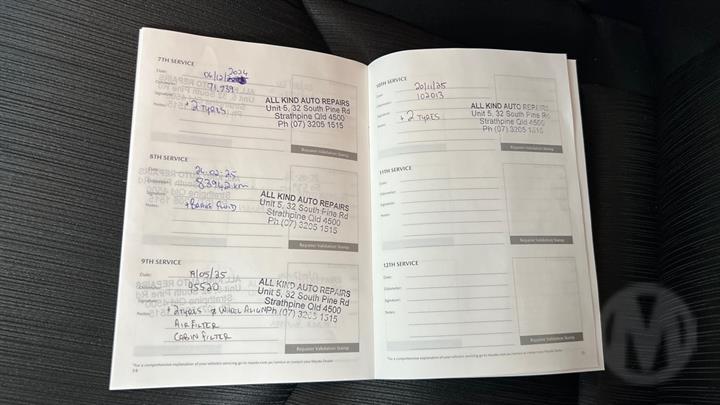 7TH SERVICE
Date: 06/12/2024
Odometer: 71,739
Signature:
Notes: + 2 TYRES
ALL KIND AUTO REPAIRS
Unit 5, 32 South Pine Rd
Strathpine Qld 4500
Ph (07) 3205 1515
Repairer Validation Stamp
8TH SERVICE
Date: 24.02.25
Odometer: 83942 km
Signature:
Notes: + BRAKE FLUID
ALL KIND AUTO REPAIRS
Unit 5, 32 South Pine Rd
Strathpine Qld 4500
Ph (07) 3205 1515
Repairer Validation Stamp
9TH SERVICE
Date: /05/25
Odometer: 95520
Signature:
Notes: + 2 TYRES & WHEEL ALIGN
AIR FILTER
CABIN FILTER
ALL KIND AUTO REPAIRS
Unit 5, 32 South Pine Rd
Strathpine Qld 4500
Ph (07) 3205 1515
Repairer Validation Stamp
10TH SERVICE
Date: 20/11/25
Odometer: 102013
Signature:
Notes: + 2 TYRES
ALL KIND AUTO REPAIRS
Unit 5, 32 South Pine Rd
Strathpine Qld 4500
Ph (07) 3205 1515
Repairer Validation Stamp
11TH SERVICE
Date:
Odometer:
Signature:
Notes:
Repairer Validation Stamp
12TH SERVICE
Date:
Odometer:
Signature:
Notes:
Repairer Validation Stamp
M